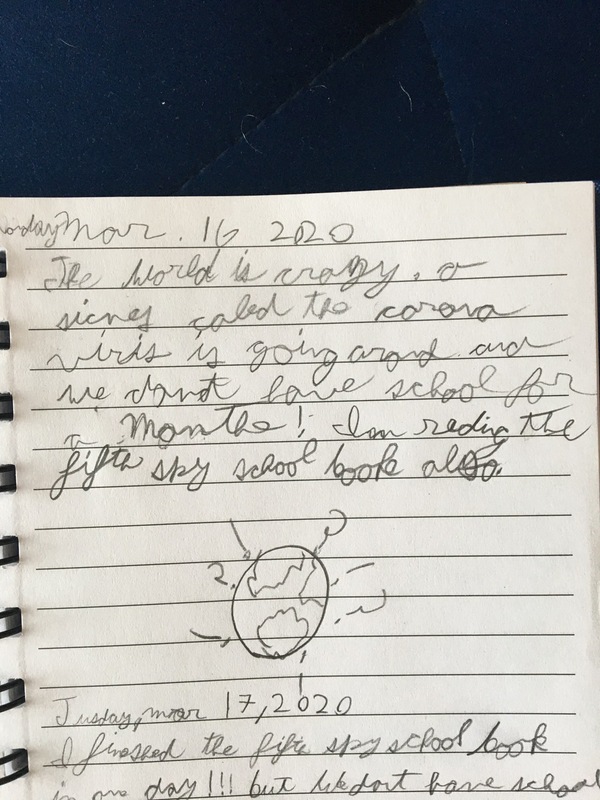 Monday Mar. 16 2020
The World is crazy. a
sicnes called the corona
viris is going arond and
we dont have school for
a Monthe! Im reding the
fifth spy school book also.
Tusday, mar 17, 2020
I fineshed the fifth spy school book
in one day!!! but We dont have school